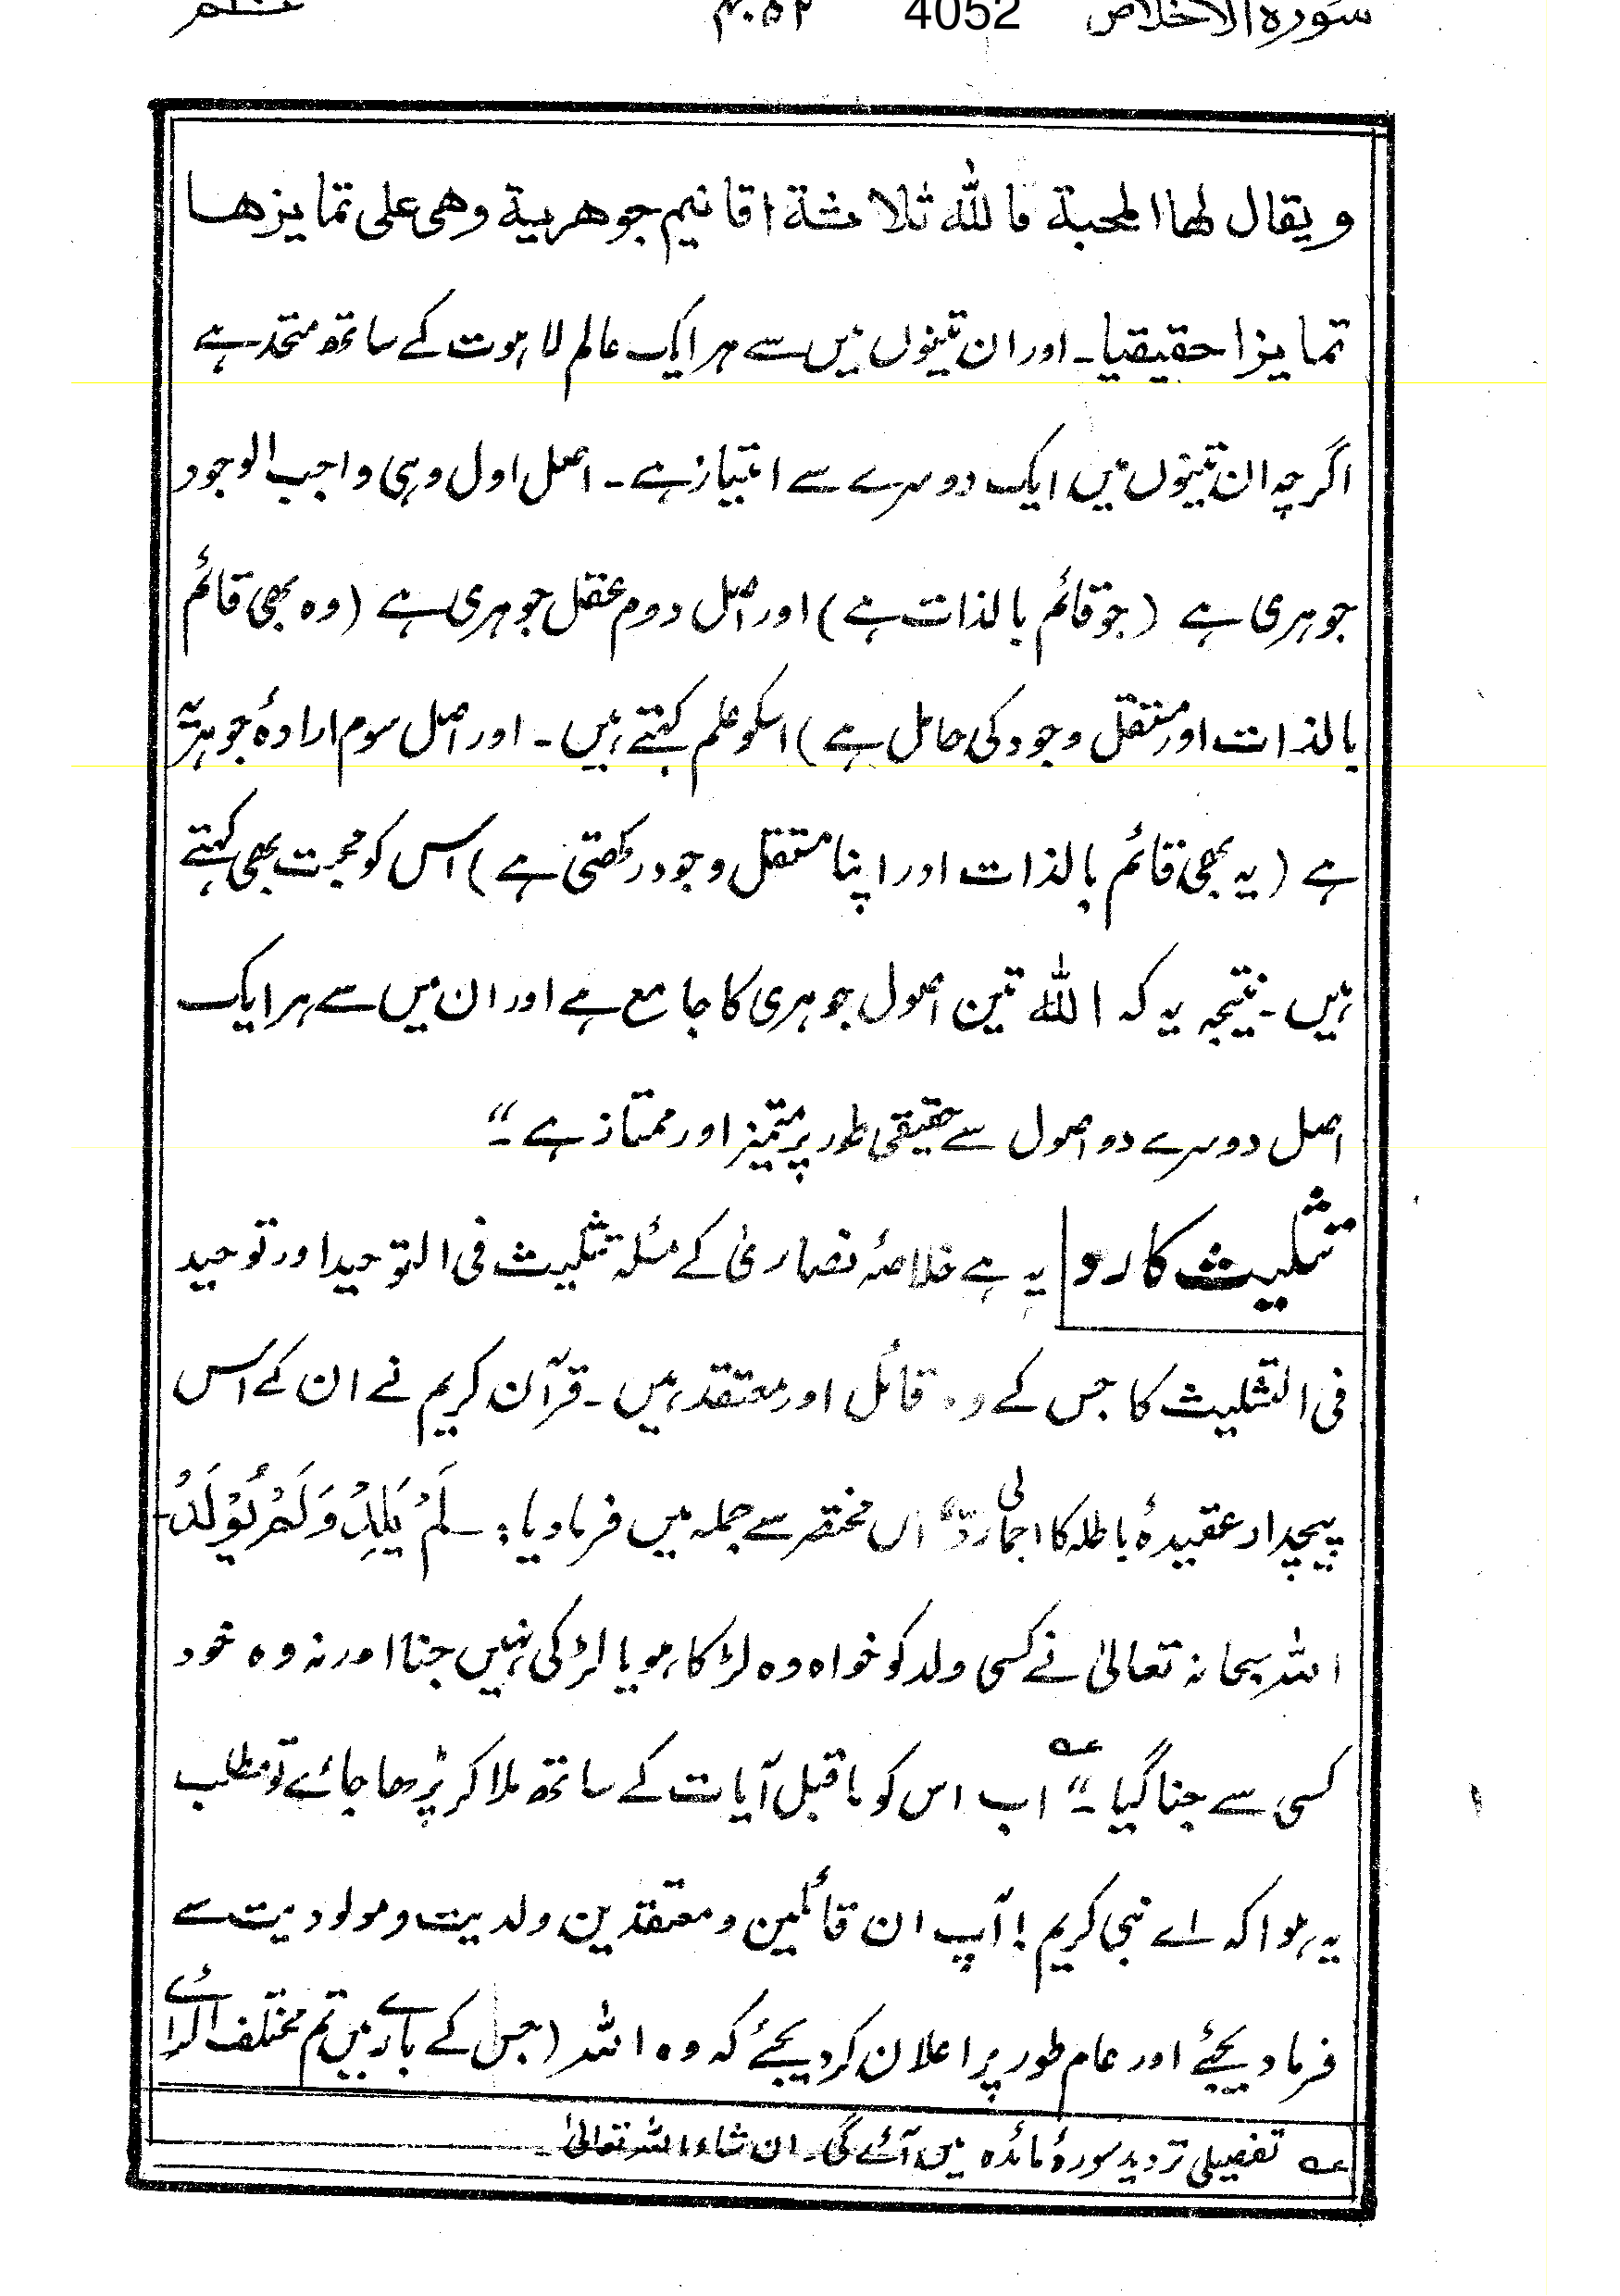 سورہ الاخلاص 4052 ۴۰۵۲
ويقال لها المحبة فالله ثلاثة اقانيم جوهرية وهى على تمايزها
تمايزا حقيقيا۔ اور ان تینوں میں سے ہر ایک عالم لاہوت کے ساتھ متحد ہے
اگرچہ ان تینوں میں ایک دوسرے سے امتیاز ہے۔ اصل اول وہی واجب الوجود
جوہری ہے (جو قائم بالذات ہے) اور اصل دوم عقل جوہری ہے (وہ بھی قائم
بالذات اور مستقل وجود کی حامل ہے) اسکو علم کہتے ہیں۔ اور اصل سوم ارادۂ جوہریّہ
ہے (یہ بھی قائم بالذات اور اپنا مستقل وجود رکھتی ہے) اس کو محبت بھی کہتے
ہیں۔ نتیجہ یہ کہ اللہ تین اصول جوہری کا جامع ہے اور ان میں سے ہر ایک
اصل دوسرے دو اصول سے حقیقی طور پر متمیز اور ممتاز ہے۔“
تثلیث کا رد یہ ہے خلاصہ نصاریٰ کے مسئلہ تثلیث فی التوحید اور توحید
فی التثلیث کا جس کے وہ قائل اور معتقد ہیں۔ قرآن کریم نے ان کے اس
پیچدار عقیدۂ باطلہ کا اجمالی ردّ اس مختصر سے جملہ میں فرما دیا: لَمْ يَلِدْ وَلَمْ يُوْلَدْ۔
اللہ سبحانہ تعالیٰ نے کسی ولد کو خواہ وہ لڑکا ہو یا لڑکی نہیں جنا اور نہ وہ خود
کسی سے جنا گیا۔“ عہ اب اس کو ماقبل آیات کے ساتھ ملا کر پڑھا جائے تو مطلب
یہ ہوا کہ اے نبی کریم! آپ ان قائلین و معتقدین ولدیت و مولودیت سے
فرما دیجئے اور عام طور پر اعلان کر دیجئے کہ وہ اللہ (جس کے بارے میں تم مختلف الرائے
عہ تفصیلی تردید سورۂ مائدہ میں آئے گی۔ ان شاء اللہ تعالیٰ۔